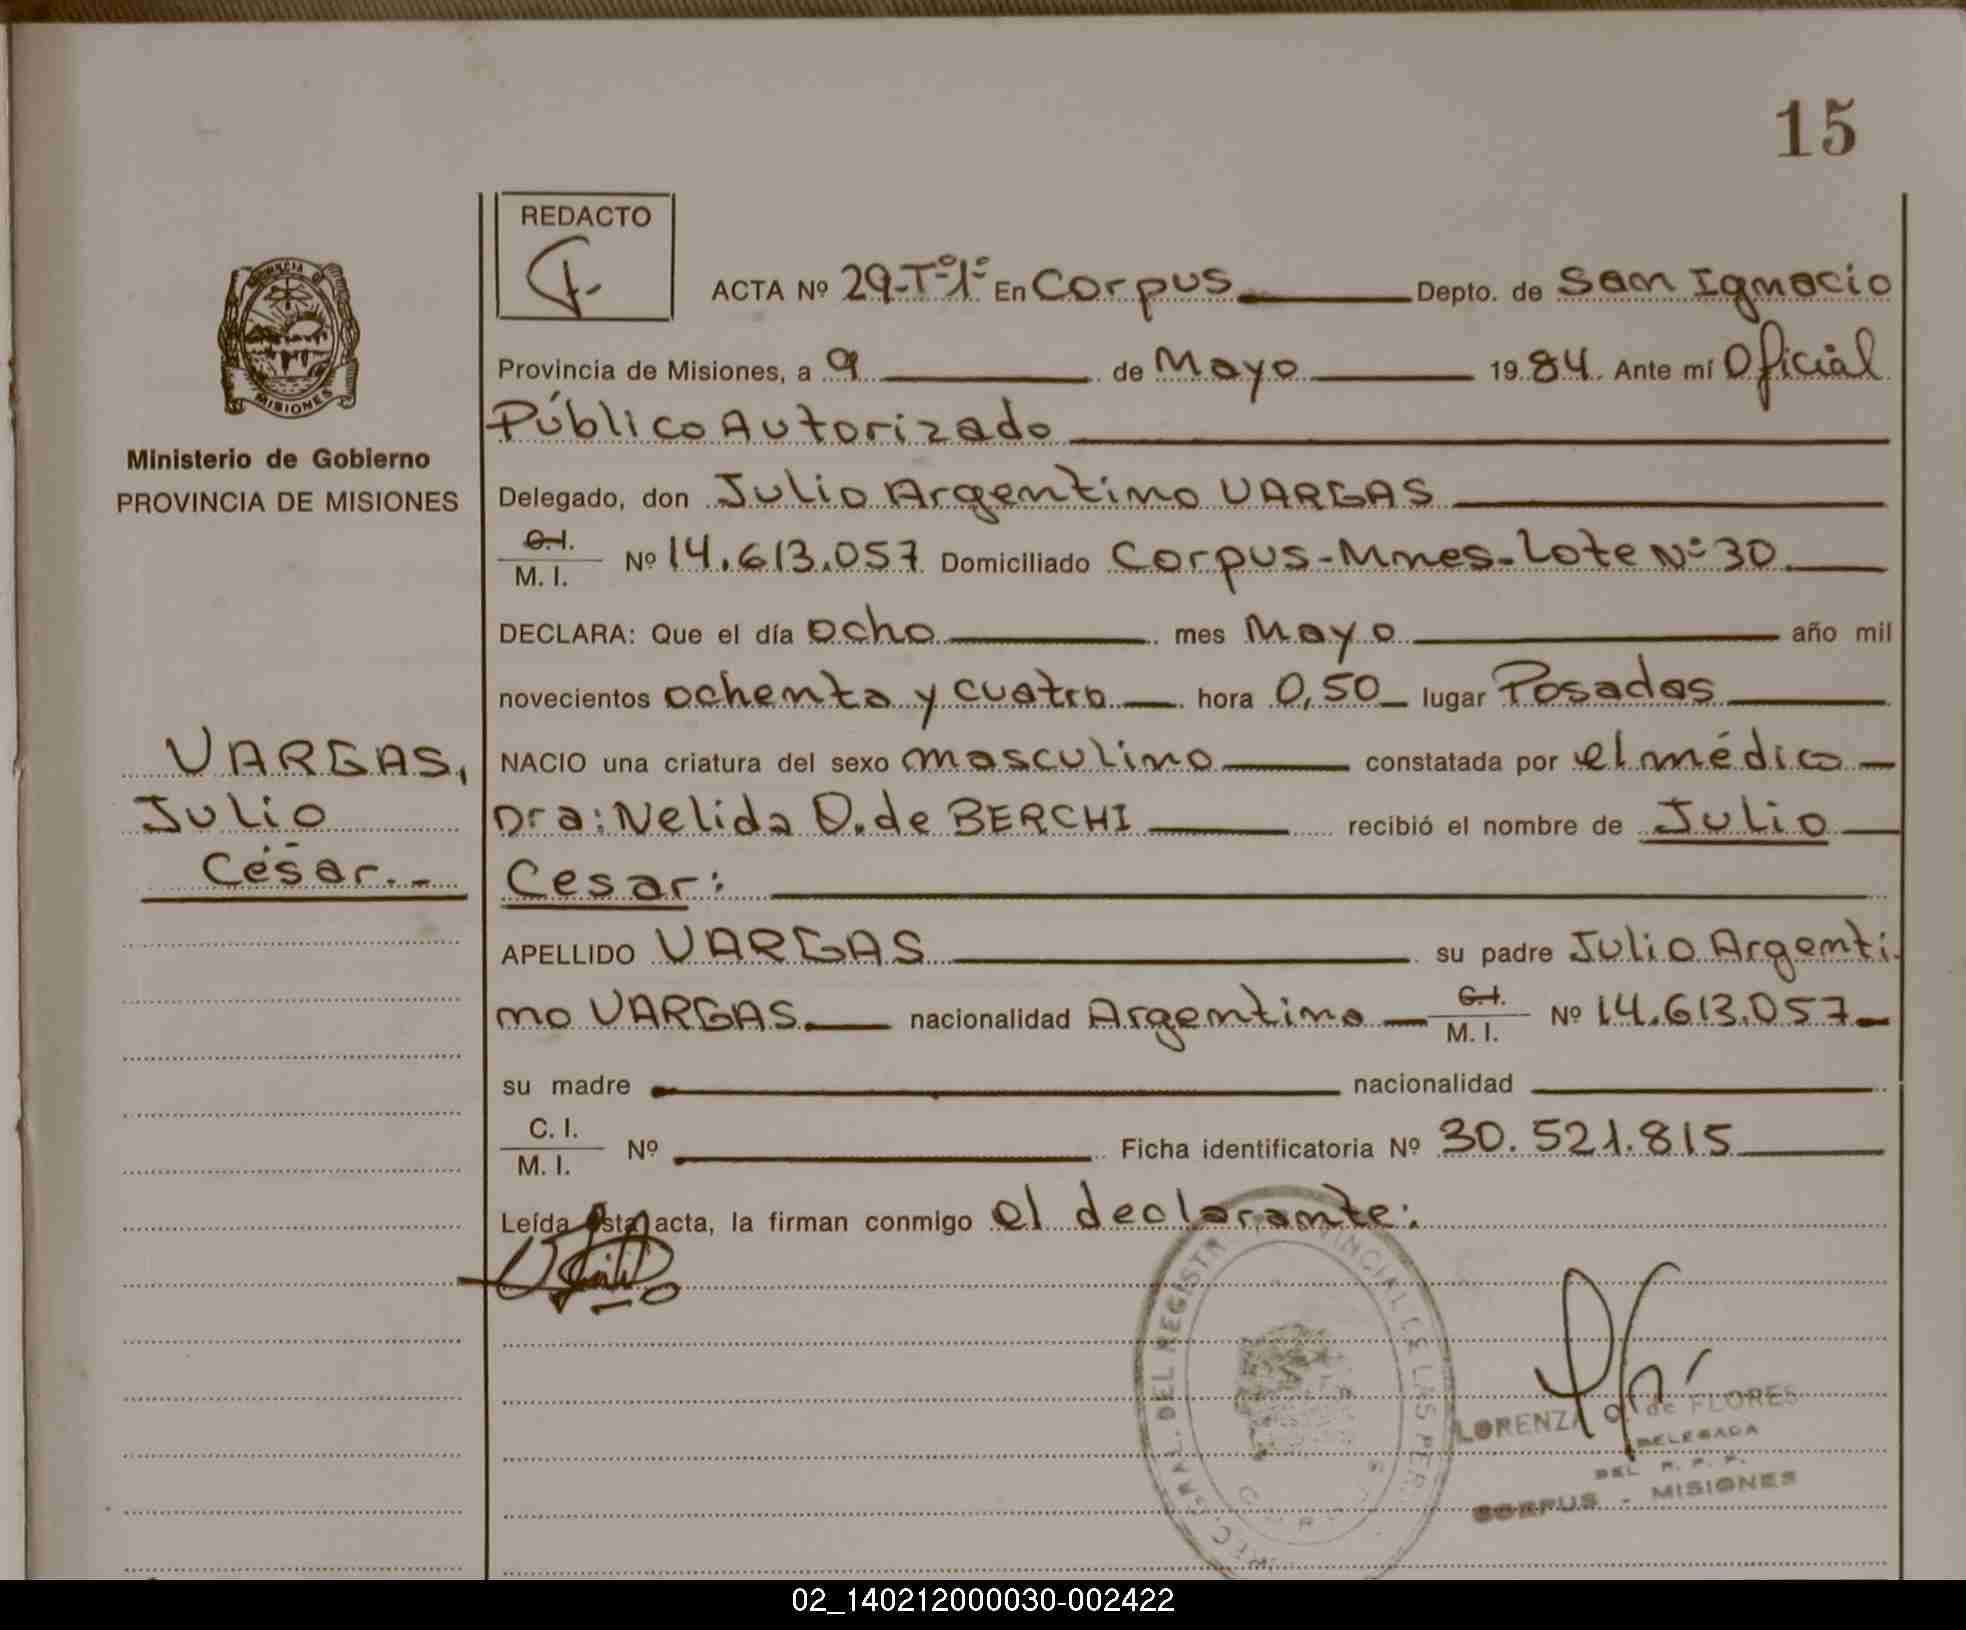 15
REDACTO
PROVINCIA DE
MISIONES
Ministerio de Gobierno
PROVINCIA DE MISIONES
ACTA Nº 29-Tº1º En Corpus Depto. de San Ignacio
Provincia de Misiones, a 9 de Mayo 19 84. Ante mí Oficial
Público Autorizado
Delegado, don Julio Argentino VARGAS
C.I. / M. I. Nº 14.613.057 Domiciliado Corpus-Mnes-Lote Nº 30
DECLARA: Que el día ocho mes Mayo año mil
novecientos ochenta y cuatro hora 0,50 lugar Posadas
NACIO una criatura del sexo masculino constatada por el médico
Dra: Nelida O. de BERCHI recibió el nombre de Julio
Cesar:
VARGAS,
Julio
César.-
APELLIDO VARGAS su padre Julio Argenti-
no VARGAS nacionalidad Argentino C.I. / M. I. Nº 14.613.057
su madre nacionalidad
C. I. / M. I. Nº Ficha identificatoria Nº 30.521.815
Leída esta acta, la firman conmigo el declarante:
LORENZA de FLORES
DELEGADA
DEL R. P. P.
CORPUS - MISIONES
02_140212000030-002422